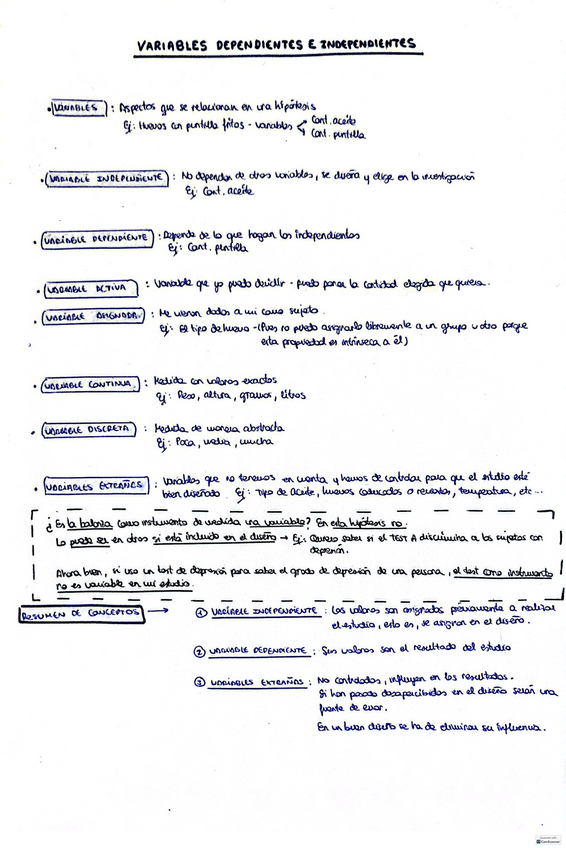 VARIABLES DEPENDIENTES E INDEPENDIENTES
• VARIABLES : Aspectos que se relacionan en una hipótesis
Ej: Huevos con puntilla fritos - variables < Cant. aceite
Cant. puntilla
• VARIABLE INDEPENDIENTE : No dependen de otras variables, se diseña y elige en la investigación
Ej: Cant. aceite
• VARIABLE DEPENDIENTE : Depende de lo que hagan las independientes
Ej: Cant. puntilla
• VARIABLE ACTIVA : Variable que yo puedo decidir - puedo poner la cantidad elegida que quiera.
• VARIABLE ASIGNADA : Me vienen dados a mi como sujeto.
Ej: El tipo de huevo - (Pues no puedo asignarlo libremente a un grupo u otro porque
esta propiedad es intrínseca a él)
• VARIABLE CONTINUA : Medida con valores exactos
Ej: Peso, altura, gramos, litros
• VARIABLE DISCRETA : Medida de manera abstracta
Ej: Poca, media, mucha
• VARIABLES EXTRAÑAS : Variables que no tenemos en cuenta y hemos de controlar para que el estudio esté
bien diseñado. Ej: Tipo de Aceite, huevos caducados o recientes, temperatura, etc...
¿Es la balanza como instrumento de medida una variable? En esta hipótesis no.
Lo puede ser en otros si está incluido en el diseño → Ej: Quiero saber si el TEST A discrimina a los sujetos con
depresión.
Ahora bien, si uso un test de depresión para saber el grado de depresión de una persona, el test como instrumento
no es variable en mi estudio.
RESUMEN DE CONCEPTOS → ① VARIABLE INDEPENDIENTE : Los valores son asignados previamente a realizar
el estudio, esto es, se asignan en el diseño.
② VARIABLE DEPENDIENTE : Sus valores son el resultado del estudio
③ VARIABLES EXTRAÑAS : No controladas, influyen en los resultados.
Si han pasado desapercibidas en el diseño serán una
fuente de error.
En un buen diseño se ha de eliminar su influencia.
CamScanner